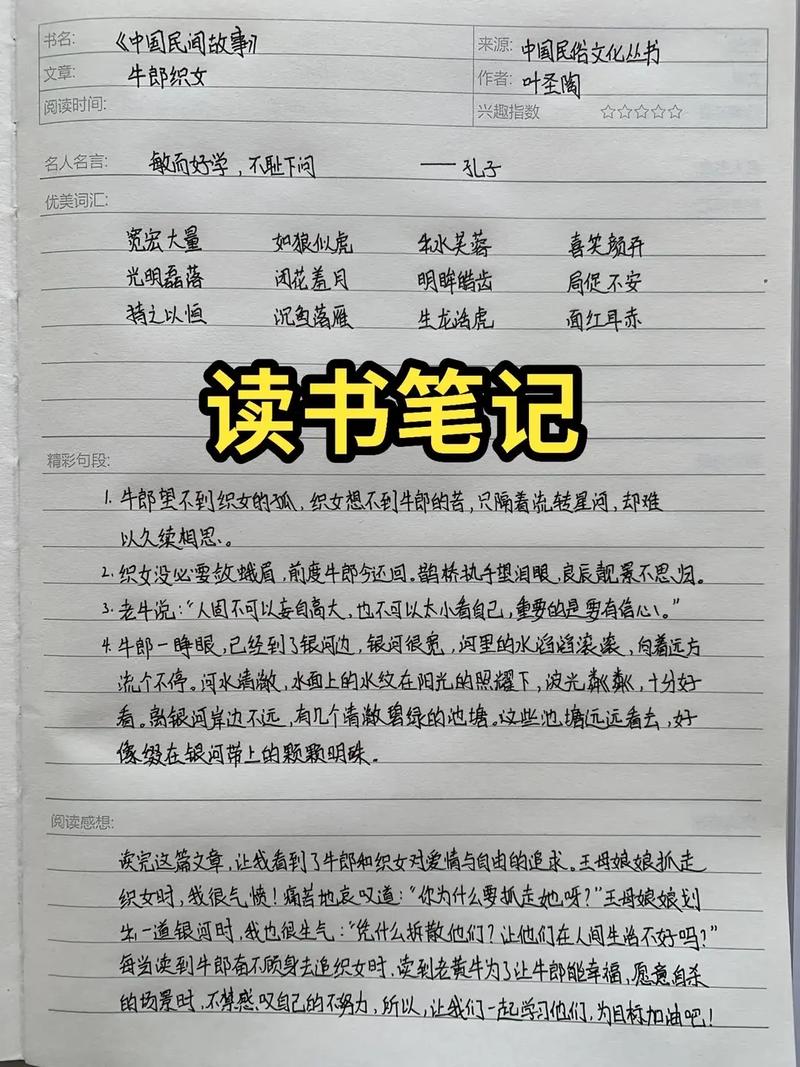 书名: 《中国民间故事》 来源: 中国民俗文化丛书
文章: 牛郎织女 作者: 叶圣陶
阅读时间: 兴趣指数 ☆☆☆☆☆
名人名言: 敏而好学，不耻下问 —— 孔子
优美词汇:
宽宏大量 如狼似虎 出水芙蓉 喜笑颜开
光明磊落 闭花羞月 明眸皓齿 局促不安
持之以恒 沉鱼落雁 生龙活虎 面红耳赤
读书笔记
精彩句段:
1. 牛郎望不到织女的孤，织女想不到牛郎的苦，只隔着流转星河，却难
以久续相思、。
2. 织女没必要敛蛾眉，前度牛郎今还回。鹊桥执手望泪眼，良辰靓景不思归。
3. 老牛说：“人固不可以妄自高大，也不可以太小看自己，重要的是要有信心。”
4. 牛郎一睁眼，已经到了银河边，银河很宽，河里的水滔滔滚滚，向着远方
流个不停。河水清澈，水面上的水纹在阳光的照耀下，波光粼粼，十分好
看。离银河岸边不远，有几个清澈碧绿的池塘。这些池塘远远看去，好
像缀在银河带上的颗颗明珠。
阅读感想:
读完这篇文章，让我看到了牛郎和织女对爱情与自由的追求。王母娘娘抓走
织女时，我很气愤！痛苦地哀叹道：“你为什么要抓走她呀？”王母娘娘划
出一道银河时，我也很生气：“凭什么拆散他们？让他们在人间生活不好吗？”
每当读到牛郎奋不顾身去追织女时，读到老黄牛为了让牛郎能幸福，愿意自杀
的场景时，不禁感叹自己的不努力，所以，让我们一起学习他们，为目标加油吧！